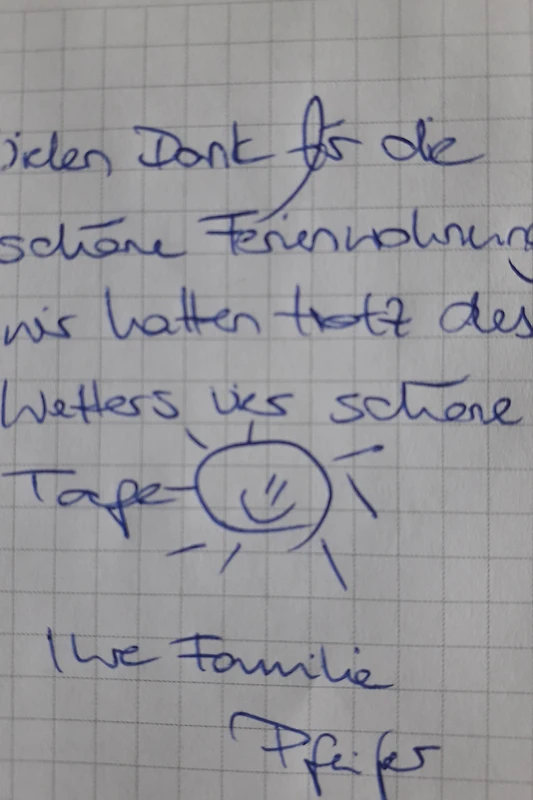 ielen Dank für die
schöne Ferienwohnung
wir hatten trotz des
Wetters vier schöne
Tage
Ihre Familie
Pfeifer